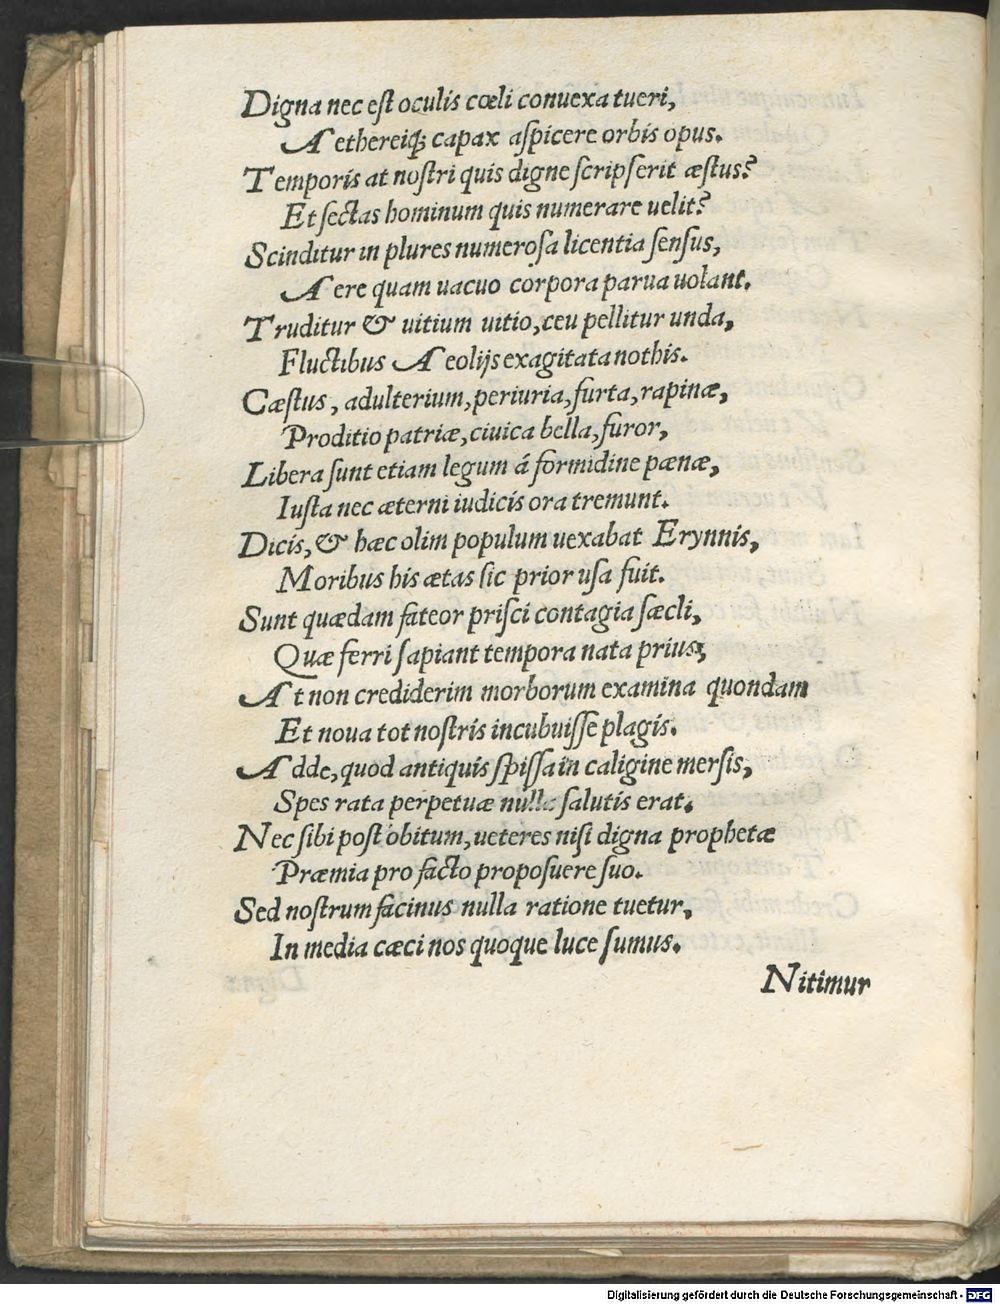 Digna nec est oculis cœli conuexa tueri,
Aethereiq; capax aſpicere orbis opus.
Temporis at noſtri quis digne ſcripſerit æſtus?
Et ſectas hominum quis numerare uelit?
Scinditur in plures numeroſa licentia ſenſus,
Aere quam uacuo corpora parua uolant.
Truditur & uitium uitio, ceu pellitur unda,
Fluctibus Aeolijs exagitata nothis.
Cæſtus, adulterium, periuria, furta, rapinæ,
Proditio patriæ, ciuica bella, furor,
Libera ſunt etiam legum á formidine pænæ,
Iuſta nec æterni iudicis ora tremunt.
Dicis, & hæc olim populum uexabat Erynnis,
Moribus his ætas ſic prior uſa fuit.
Sunt quædam fateor priſci contagia ſæcli,
Quæ ferri ſapiant tempora nata prius;
At non crediderim morborum examina quondam
Et noua tot noſtris incubuiſſe plagis.
Adde, quod antiquis ſpiſſa in caligine merſis,
Spes rata perpetuæ nulla ſalutis erat.
Nec ſibi poſt obitum, ueteres niſi digna prophetæ
Præmia pro facto propoſuere ſuo.
Sed noſtrum facinus nulla ratione tuetur,
In media cæci nos quoque luce ſumus.
Nitimur
Digitalisierung gefördert durch die Deutsche Forschungsgemeinschaft - DFG